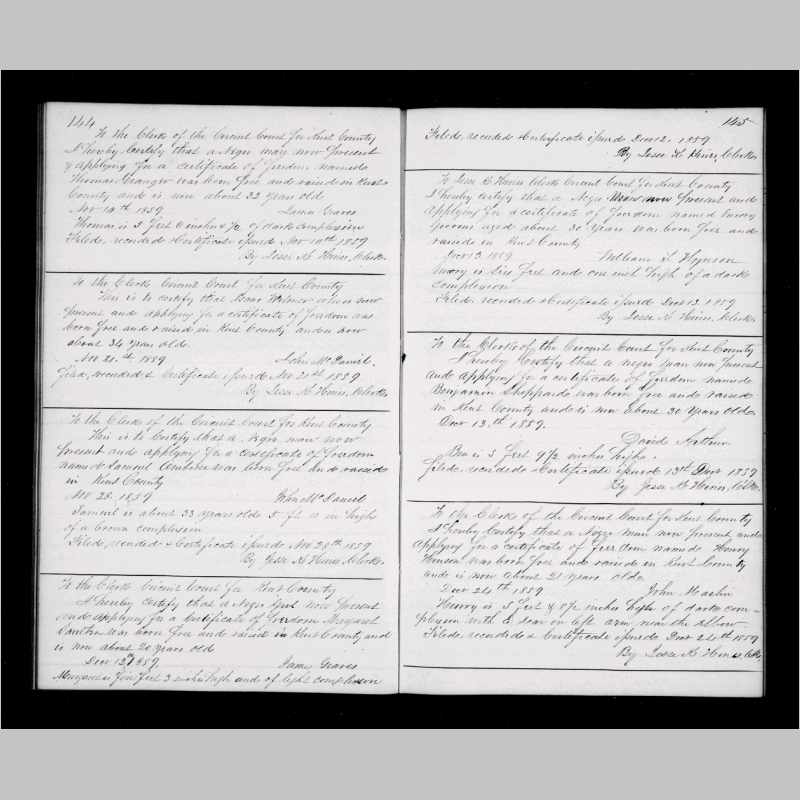 144
To the Clerk of the Circuit Court for Kent County
I hereby Certify that a Negro man now present
& applying for a certificate of freedom named
Thomas Granger was born free and raised in Kent
County and is now about 32 years old
Nov 10th 1859 James Graves
Thomas is 5 feet 6 inches & 1/2 of dark complexion
Filed, recorded & Certificate issued Nov 10th 1859
By Jesse K Hines, Clerk.
To the Clerk Circuit Court for Kent County
This is to certify that Isaac Wilmer who is now
present and applying for a certificate of freedom was
born free and raised in Kent County and is now
about 34 years old.
Nov 21st 1859 John McDaniel.
Filed, recorded & Certificate issued Nov 21st 1859
By Jesse K Hines, Clerk.
To the Clerk of the Circuit Court for Kent County
This is to Certify that a Negro man now
present and applying for a certificate of freedom
named Samuel was born free and raised
in Kent County
Nov 28. 1859 John McDaniel
Samuel is about 33 years old 5 ft in high
of a brown complexion
Filed, recorded & Certificate issued Nov 28th 1859
By Jesse K Hines, Clerk.
To the Clerk Circuit Court for Kent County
I hereby certify that a Negro girl now present
and applying for a Certificate of Freedom Margaret
was born free and raised in Kent County and
is now about 20 years old
Dec 12th 1859 James Graves
Margaret is five feet 3 inches high and of light complexion
145
Filed, recorded & Certificate issued Dec 12. 1859
By Jesse K Hines, Clerk
To Jesse K Hines Clerk Circuit Court for Kent County
I hereby certify that a Negro now present and
applying for a certificate of freedom named
aged about 30 years was born free and
raised in Kent County
Dec 13 1859 William
is five feet and one inch high of a dark
complexion
Filed, recorded & Certificate issued Dec 13. 1859
By Jesse K Hines, Clerk.
To the Clerk of the Circuit Court for Kent County
I hereby Certify that a negro man now present
and applying for a certificate of freedom named
Benjamin Sheppard was born free and raised
in Kent County and is now about 30 years old
Dec 13th 1859.
David Arthur
Ben is 5 feet 9 1/2 inches high.
Filed, recorded & Certificate issued 13th Decr 1859
By Jesse K Hines, Clk.
To the Clerk of the Circuit Court for Kent County
I hereby Certify that a Negro man now present and
applying for a certificate of freedom named Henry
was born free and raised in Kent County
and is now about 21 years old.
Decr 24th 1859 John Maslin
Henry is 5 feet & 8 1/2 inches high of dark com-
plexion with a scar on left arm near the Elbow
Filed, recorded & Certificate issued Decr 24th 1859
By Jesse K Hines, Clk.